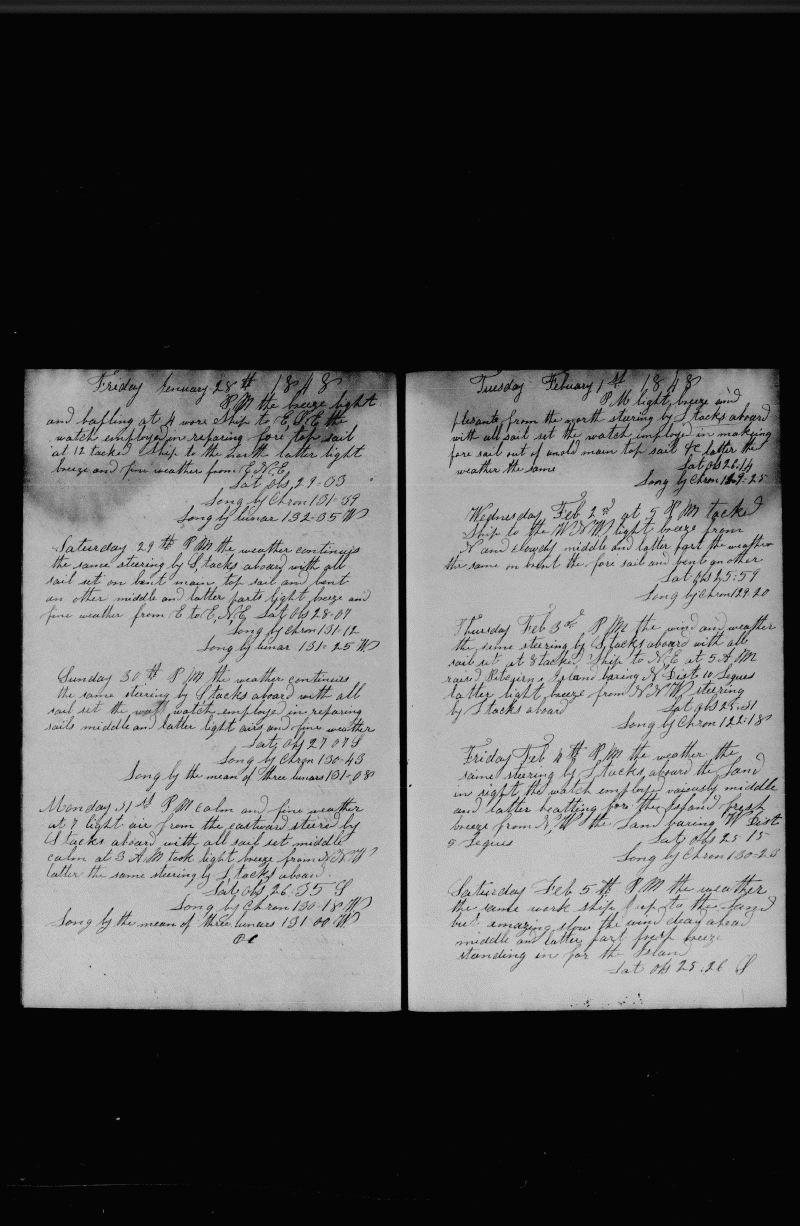 Friday Jenuary 28th 1848
P,M the breeze light
and bafling at 4 wore Ship to E,S,E the
watch employed in reparing fore top sail
at 12 tacked Ship to the North latter light
breeze and fine weather from E.N.E
Lat obs 29-03
Long by Chron 131-59
Long by lunar 132-35 W
Saturday 29th P,M the weather continuis
the same steering by S,tacks aboard with all
sail set on bent main top sail and bent
an other middle and latter parts light breeze and
fine weather from E to E.N.E, Lat obs 28-07
Long by Chron 131-12
Long by lunar 131-25 W
Sunday 30th P,M the weather continues
the same steering by S tacks aboard with all
sail set the watch employe in reparing
sails middle and latter light airs and fine weather
Lat obs 27 07 S
Long by Chron 130-43
Long by the mean of three lunars 131-08
Monday 31st P,M calm and fine weather
at 7 light air from the eastward steerd by
S tacks aboard with all sail set middle
calm at 3 A M took light breeze from N,N W
latter the same steering by S,tacks aboard
Lat obs 26.35 S
Long by Chron 130-18 W
Long by the mean of three lunars 131 00 W
Tuesday Febuary 1st 1848
P,M light breeze and
plesant from the north steering by S tacks aboard
with all sail set the watch employed in making
fore sail out of anold main top sail &c latter the
weather the same Lat obs 26:14
Long by Chron 129-25
Wednesday Feb 2nd at 5 P,M tacked
Ship to the W N W light breeze from
N and clowdy middle and latter part the weather
the same on bent the fore sail and bent another
Lat obs 25:59
Long by Chron 129 20
Thursday Feb 3rd P,M the wind and weather
the same steering by S tacks aboard with all
sail set at 8 tacked Ship to N,E at 5 A M
raised Pitcgirns Island baring N Dist 10 Legues
latter light breeze from N N W steering
by S tacks aboard Lat obs 25:31
Long by Chron 122:18
Friday Feb 4th P,M the weather the
same steering by S,tacks aboard the Land
in sight the watch employe vaiously middle
and latter beatting for the Island fresh
breeze from N,W the Land baring W Dist
5 Legues Lat obs 25 15
Long by Chron 130-23
Saturday Feb 5th P,M the weather
the same work ship up to the Land
but amazing slow the wind dead ahead
middle and latter part fresh breeze
standing in for the Islan
Lat obs 25.26 S